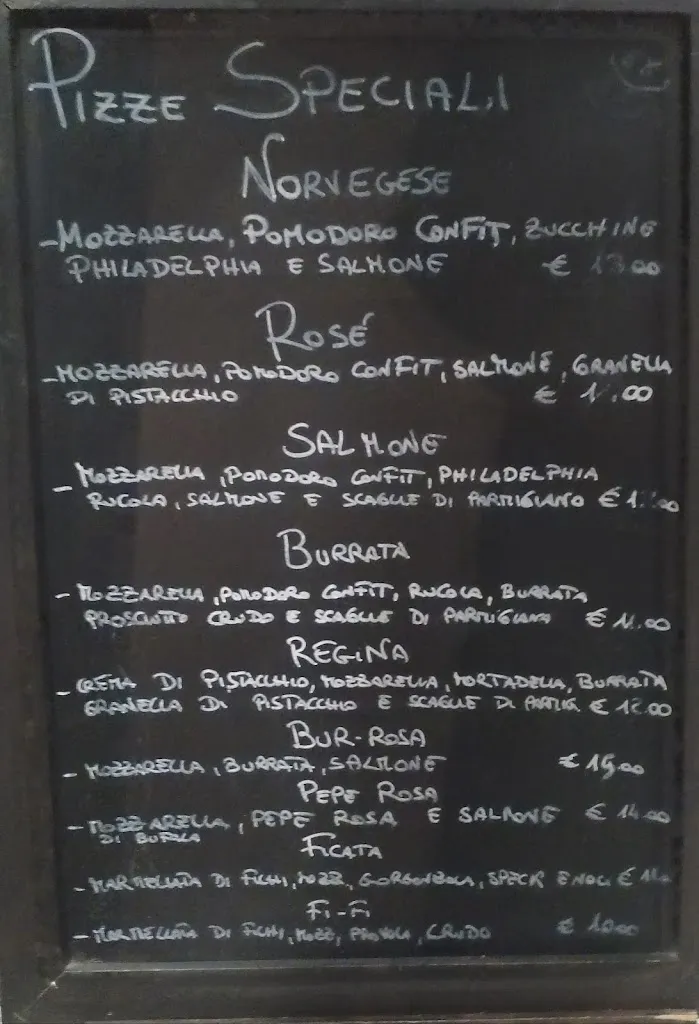 PIZZE SPECIALI
NORVEGESE
- MOZZARELLA, POMODORO CONFIT, ZUCCHINE
PHILADELPHIA E SALMONE € 13.00
ROSÉ
- MOZZARELLA, POMODORO CONFIT, SALMONE, GRANELLA
DI PISTACCHIO €
SALMONE
- MOZZARELLA, POMODORO CONFIT, PHILADELPHIA
RUCOLA, SALMONE E SCAGLIE DI PARMIGIANO €
BURRATA
- MOZZARELLA, POMODORO CONFIT, RUCOLA, BURRATA
PROSCIUTTO CRUDO E SCAGLIE DI PARMIGIANO € 11.00
REGINA
- CREMA DI PISTACCHIO, MOZZARELLA, MORTADELLA, BURRATA
GRANELLA DI PISTACCHIO E SCAGLIE DI PARMIG. € 12.00
BUR-ROSA
- MOZZARELLA, BURRATA, SALMONE €
PEPE ROSA
- MOZZARELLA, PEPE ROSA E SALMONE € 14.00
DI BUFALA
FICATA
- MARMELLATA DI FICHI, MOZZ, GORGONZOLA, SPECK E NOCI €
FI-FI
- MARMELLATA DI FICHI, MOZZ, PROVOLA, CRUDO € 10.00